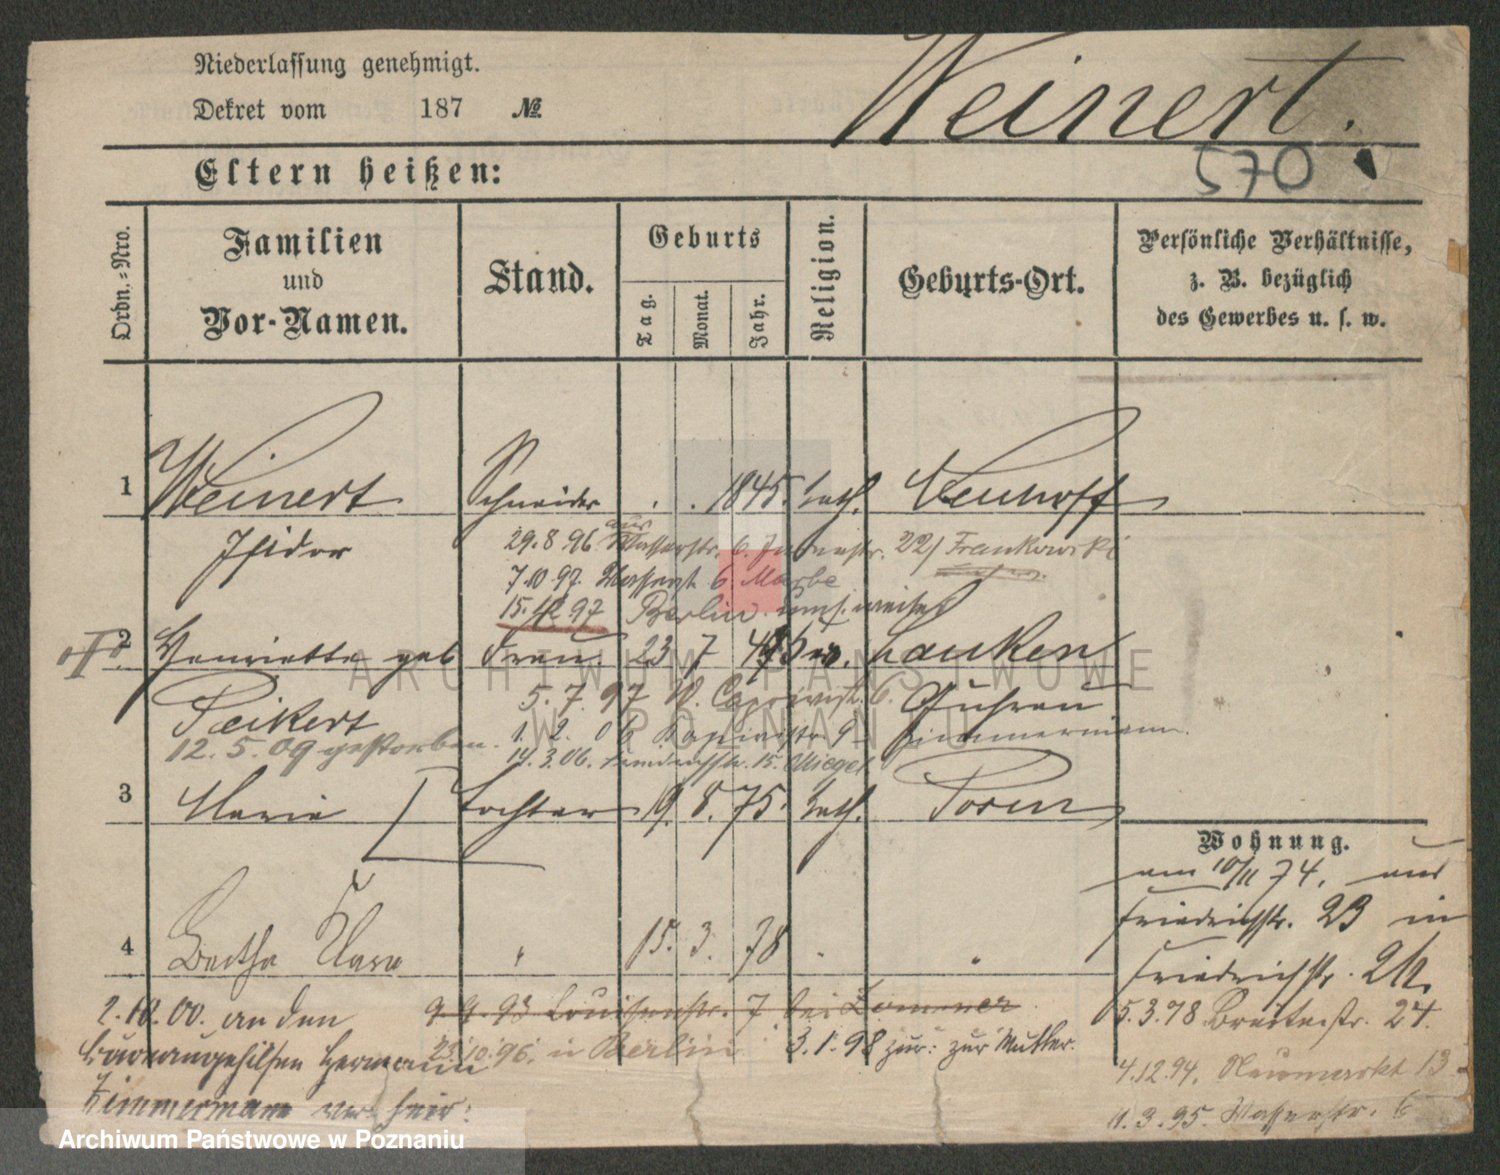 Niederlassung genehmigt.
Dekret vom 187 №
Weinert.
570
Eltern heißen:
Ordn.-Nro.
Familien
und
Vor-Namen.
Stand.
Geburts
Tag.
Monat.
Jahr.
Religion.
Geburts-Ort.
Persönliche Verhältnisse,
z. B. bezüglich
des Gewerbes u. s. w.
1 Weinert Schneider 1845. kath. Neuhoff
Isidor
29.8.96 aus Wasserstr. 6. 22/ Frankowski
7.10.97. Wasserstr. 6
15. 97 Berlin
2 Henriette geb Frau. 23 7 Lauken
Peikert
5. 7. 97 W. 6. Guhrau
12. 5. 09 gestorben.
1. 2. 9 Zimmermann.
14.3.06. 15.
3 Marie Tochter 19. 8. 75. kath. Posen
Wohnung.
am 10/11 74. aus
Friedrichstr. 23 in
Friedrichstr.
4 Bertha Klara " 15. 3. 78 " "
2.10.00. an den
9.9.93 Louisenstr. 7 bei
5.3.78 Breitestr. 24.
Hermann
23.10.96. in Berlin
3.1.98 zur: zur Mutter.
4.12.94. Neumarkt 13.
Zimmermann verheir:
1.3.95. Wasserstr. 6
ARCHIWUM PAŃSTWOWE
W POZNANIU
Archiwum Państwowe w Poznaniu